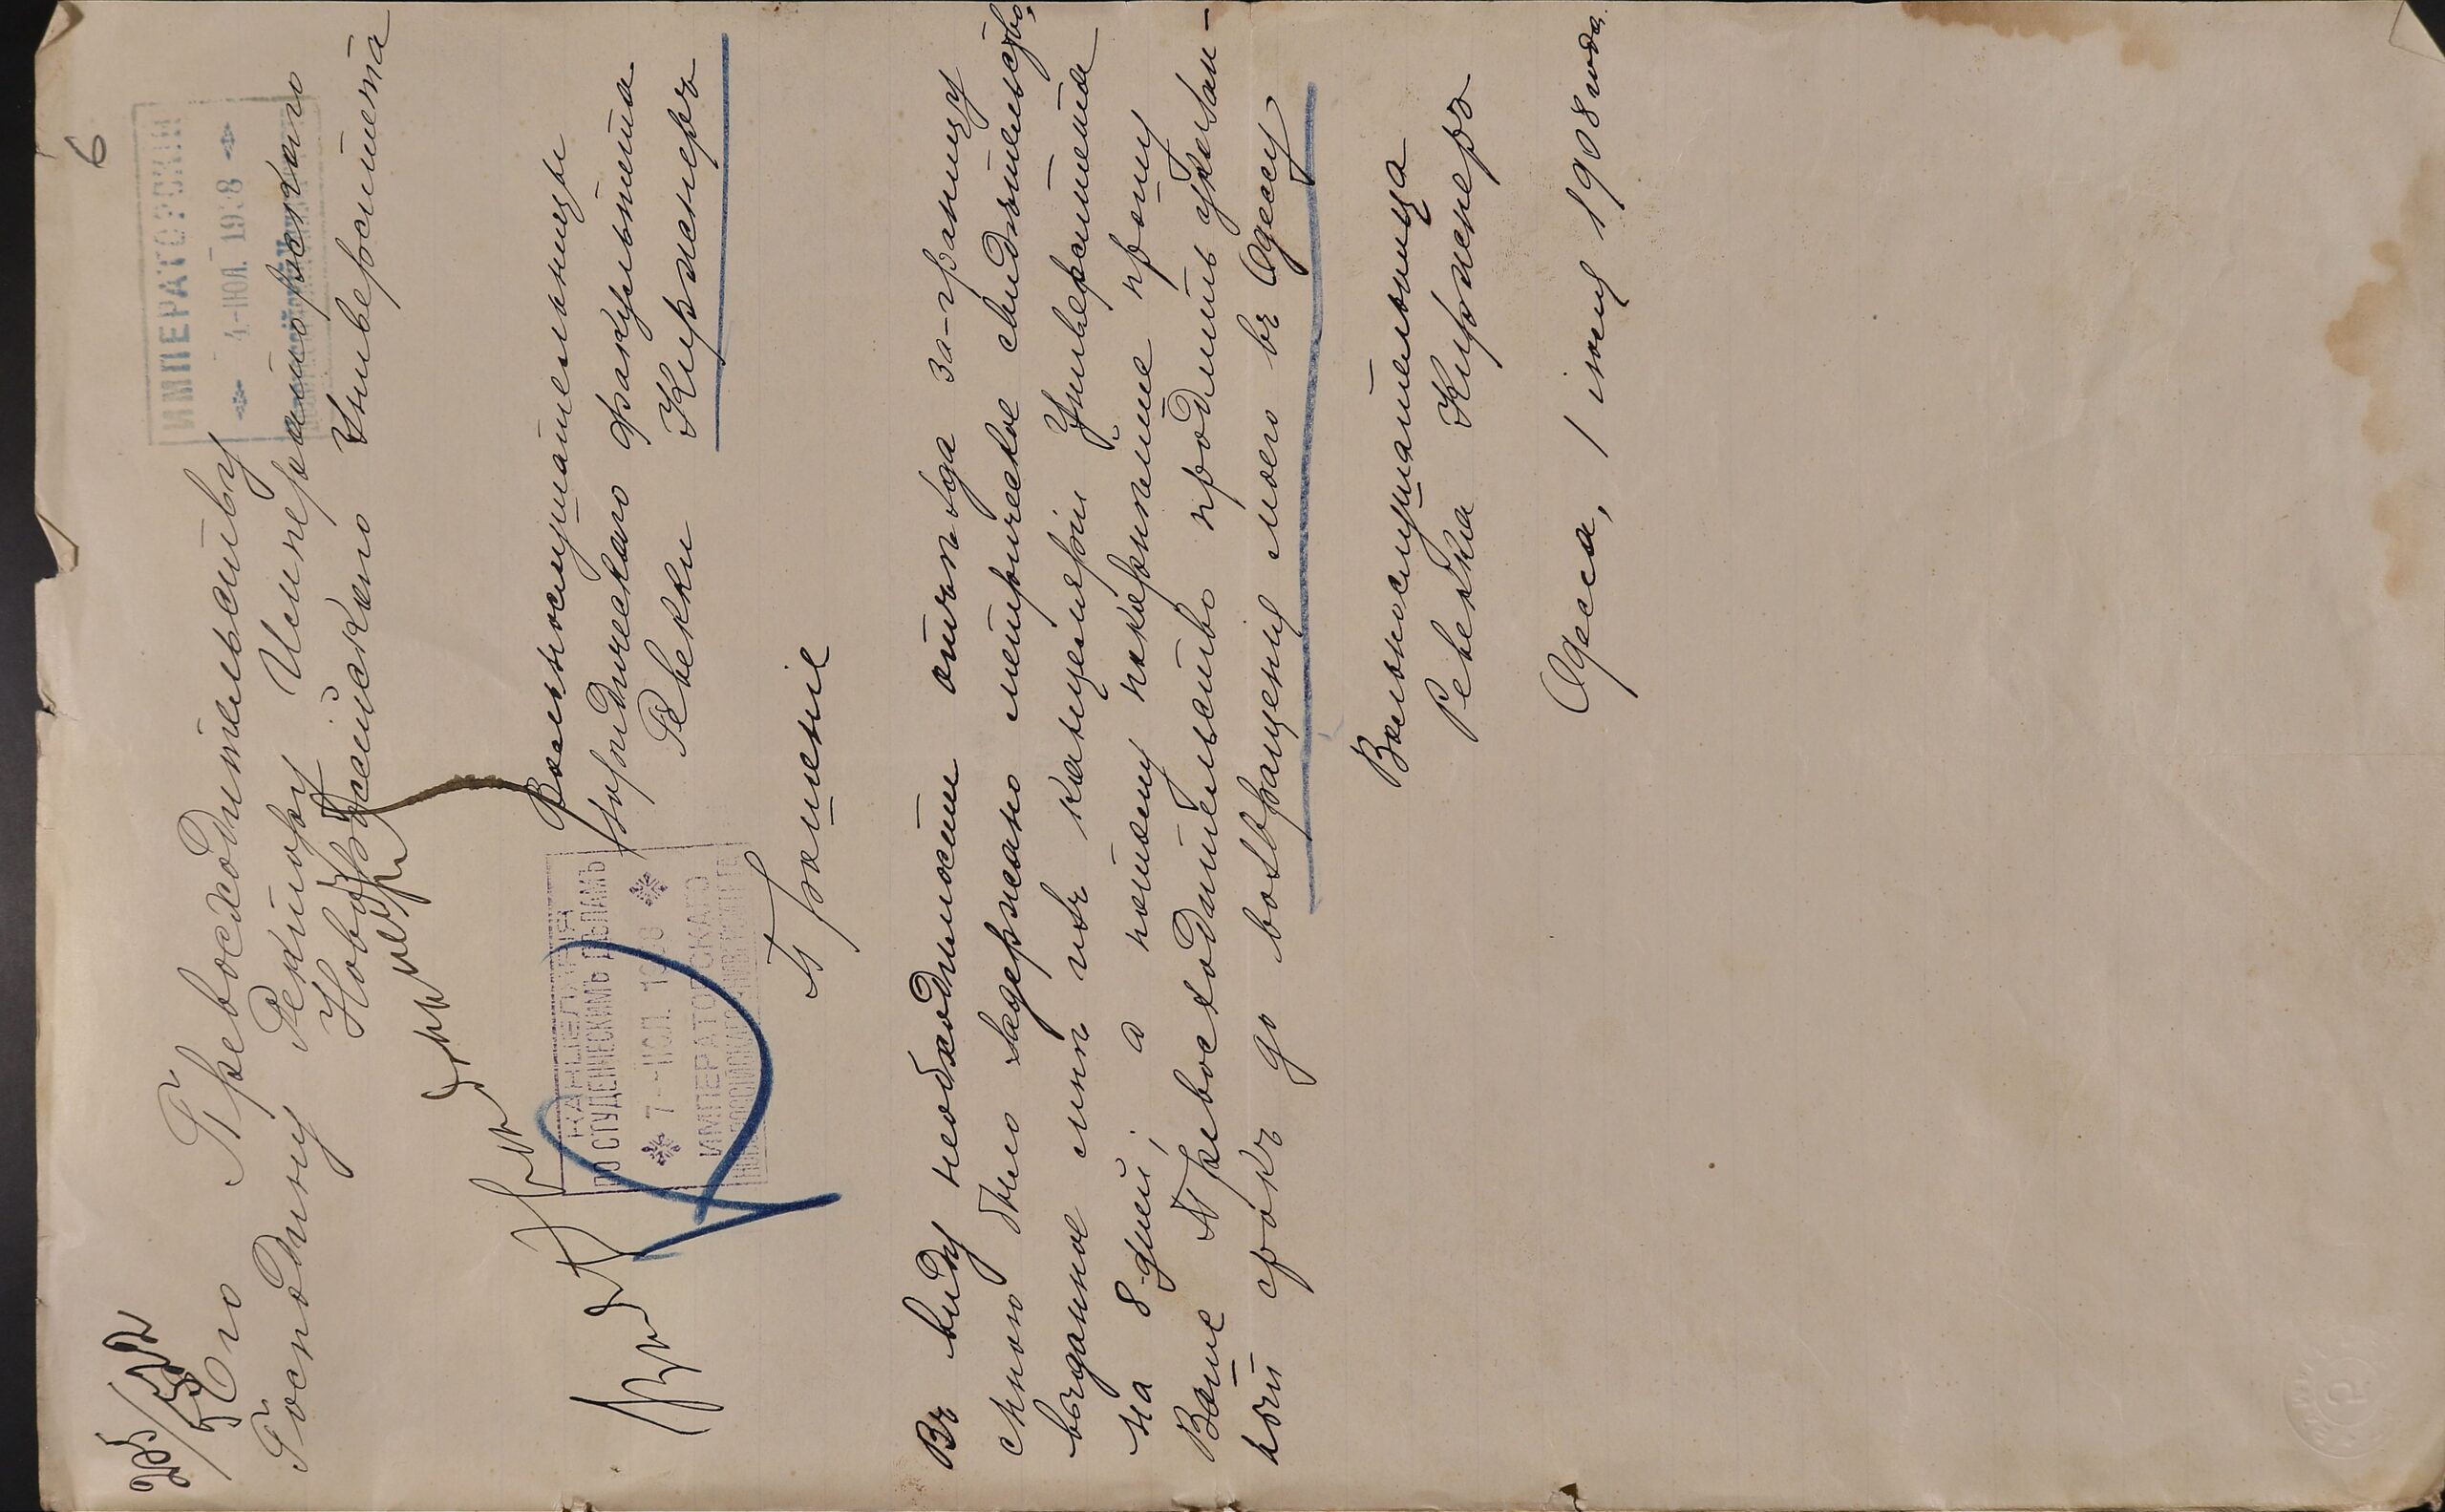 6
Его Превосходительству
Господину Ректору Императорскаго
Новороссійскаго Университета
ИМПЕРАТОРСКІЙ
4-ІЮЛ. 1908
Вольнослушательницы
юридическаго факультета
Ревекки Киржнеръ
КАНЦЕЛЯРІЯ
ПО СТУДЕНЧЕСКИМЪ ДѢЛАМЪ
7-ІЮЛ. 1908
ИМПЕРАТОРСКАГО
НОВОРОССІЙСКАГО УНИВЕРСИТЕТА
Прошеніе
Въ виду необходимости отъѣзда за-границу
мною было задержано метрическое свидѣтельство,
выданное мнѣ изъ канцеляріи Университета
на 8 дней, а потому покорнѣйше прошу
Ваше Превосходительство продлить указан-
ный срокъ до возвращенія моего въ Одессу
Вольнослушательница
Ревекка Киржнеръ
Одесса, 1 іюля 1908 года.